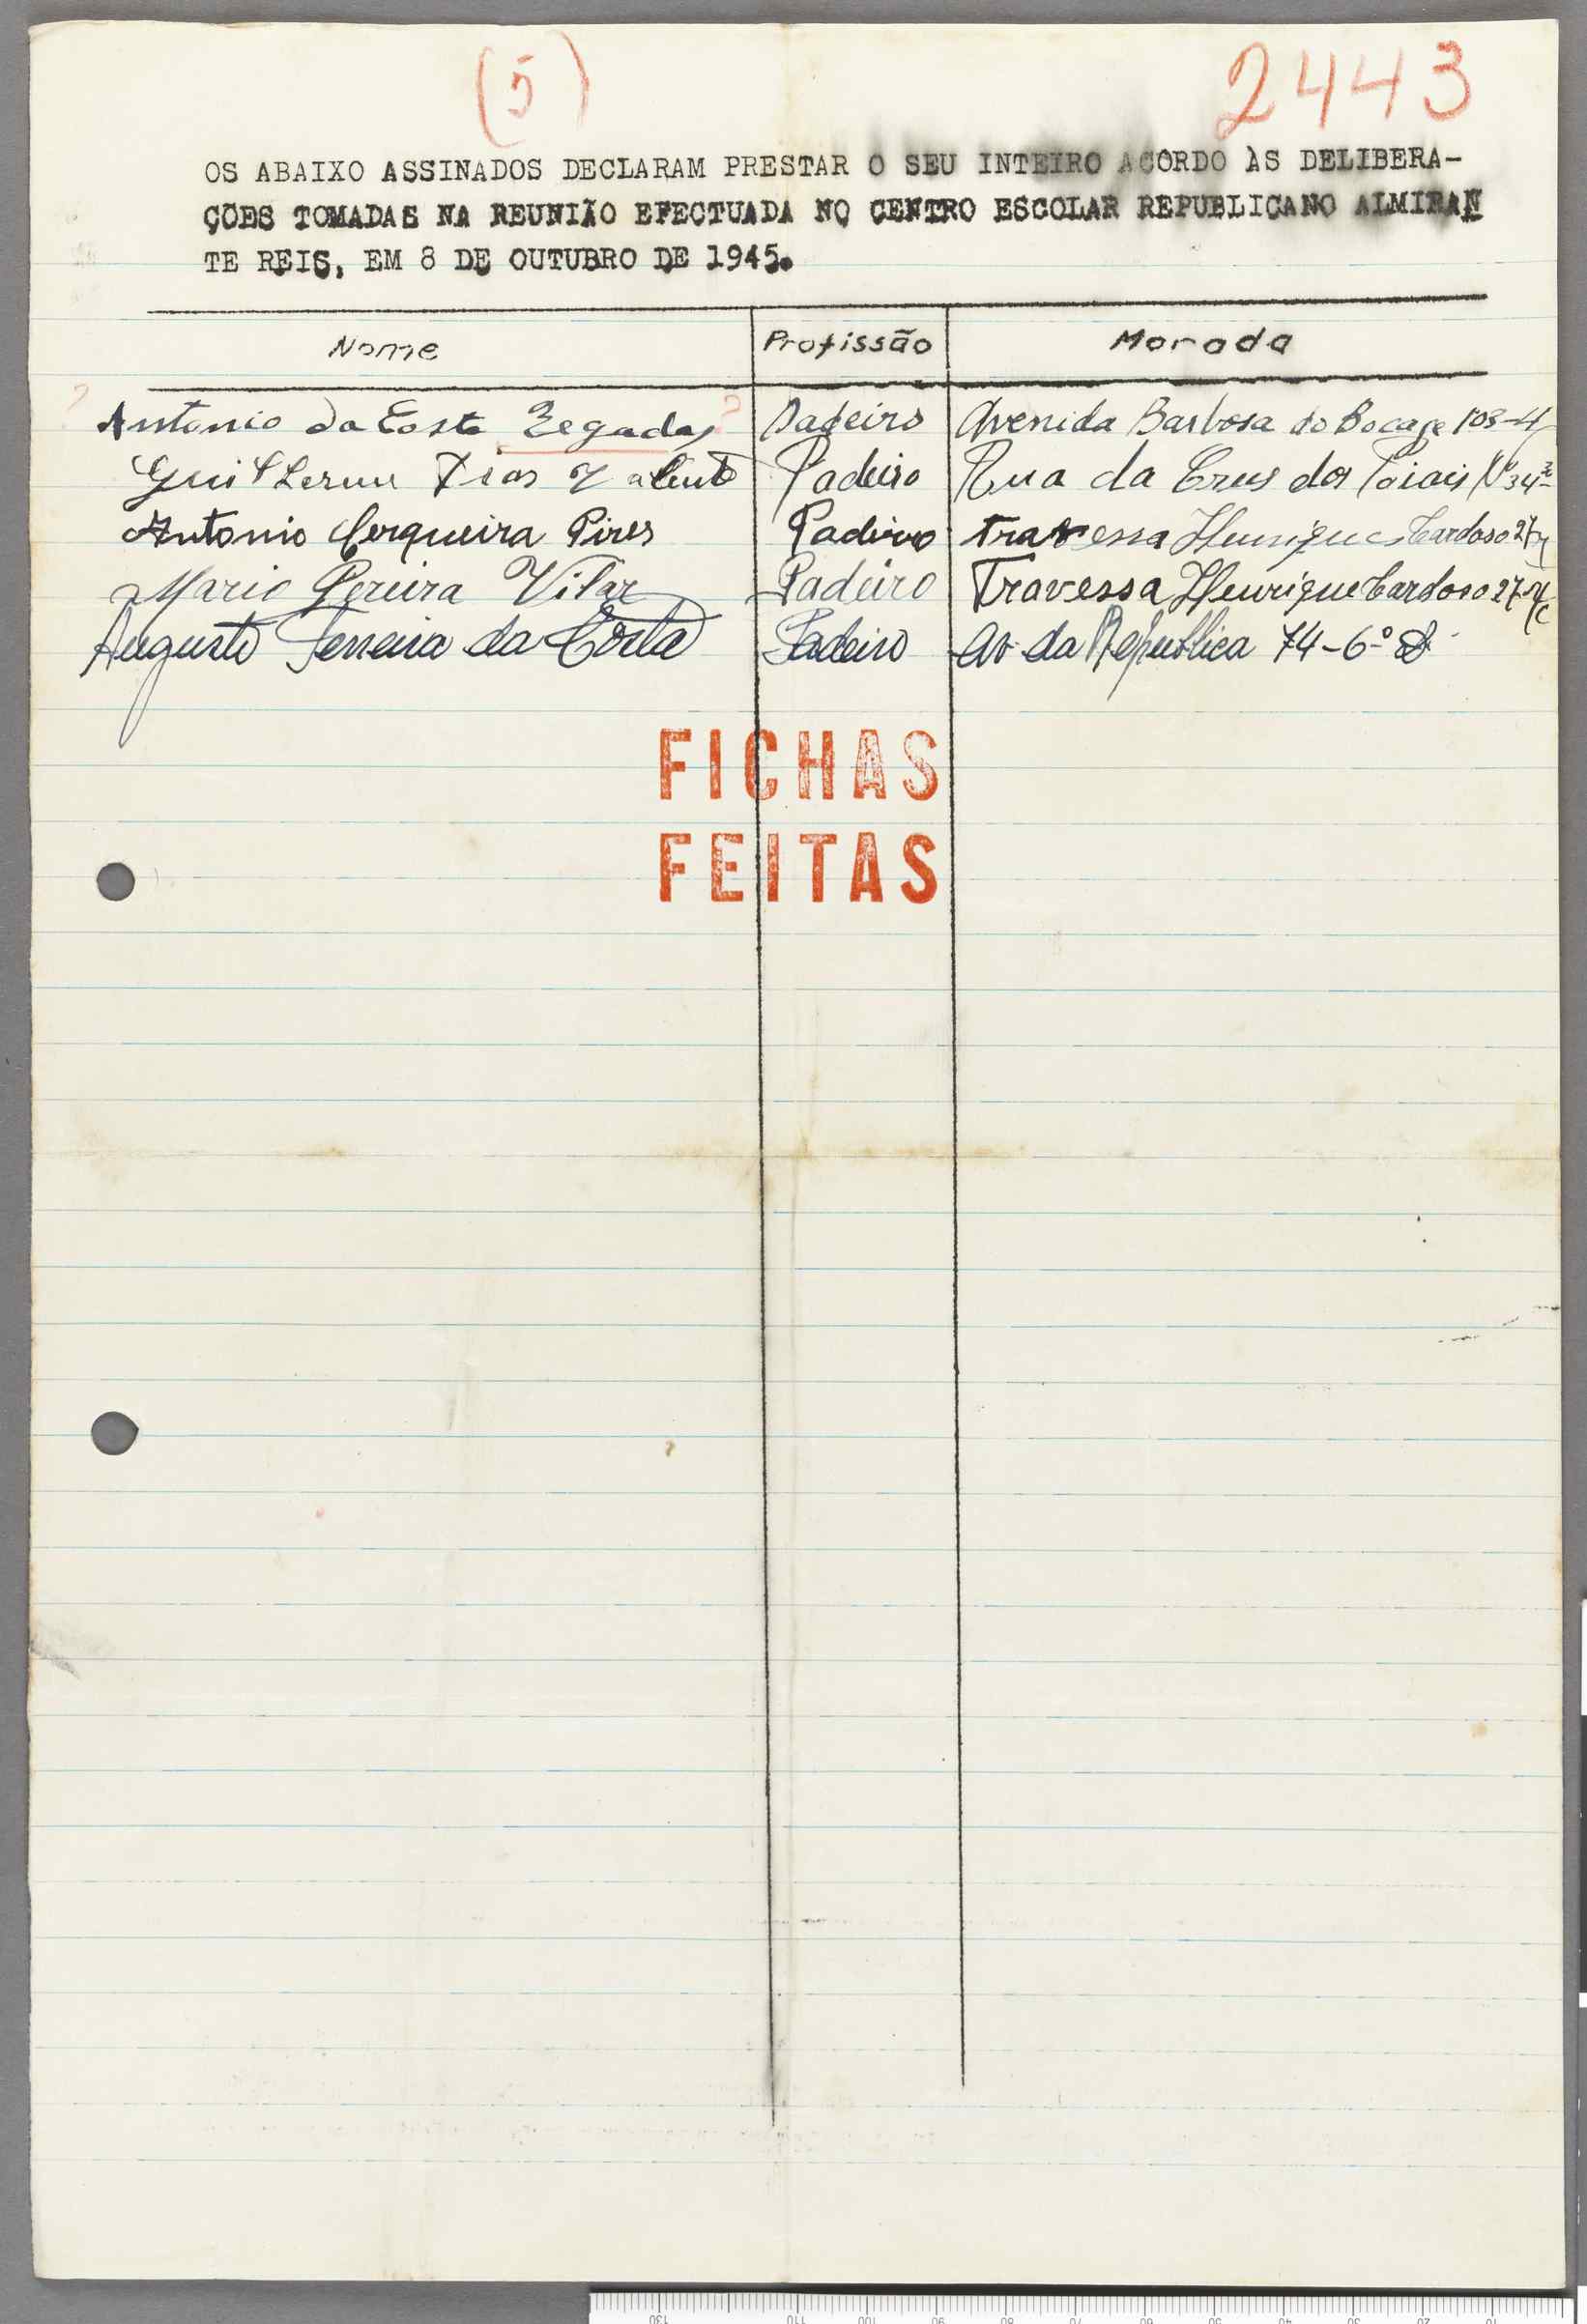 (5) 2443
OS ABAIXO ASSINADOS DECLARAM PRESTAR O SEU INTEIRO ACORDO ÀS DELIBERA-
ÇÕES TOMADAS NA REUNIÃO EFECTUADA NO CENTRO ESCOLAR REPUBLICANO ALMIRAN
TE REIS, EM 8 DE OUTUBRO DE 1945.
Nome Profissão Morada
Antonio da Costa Padeiro Avenida Barbosa do Bocage 103-4
Guilherme Dias Valente Padeiro Rua da Crus dos Poiais Nº 34
Antonio Cerqueira Pires Padeiro travessa Henrique Cardoso 27
Mario Pereira Vilar Padeiro Travessa Henrique Cardoso 27
Augusto Ferreira da Costa Padeiro Av. da Republica 74-6º
FICHAS
FEITAS